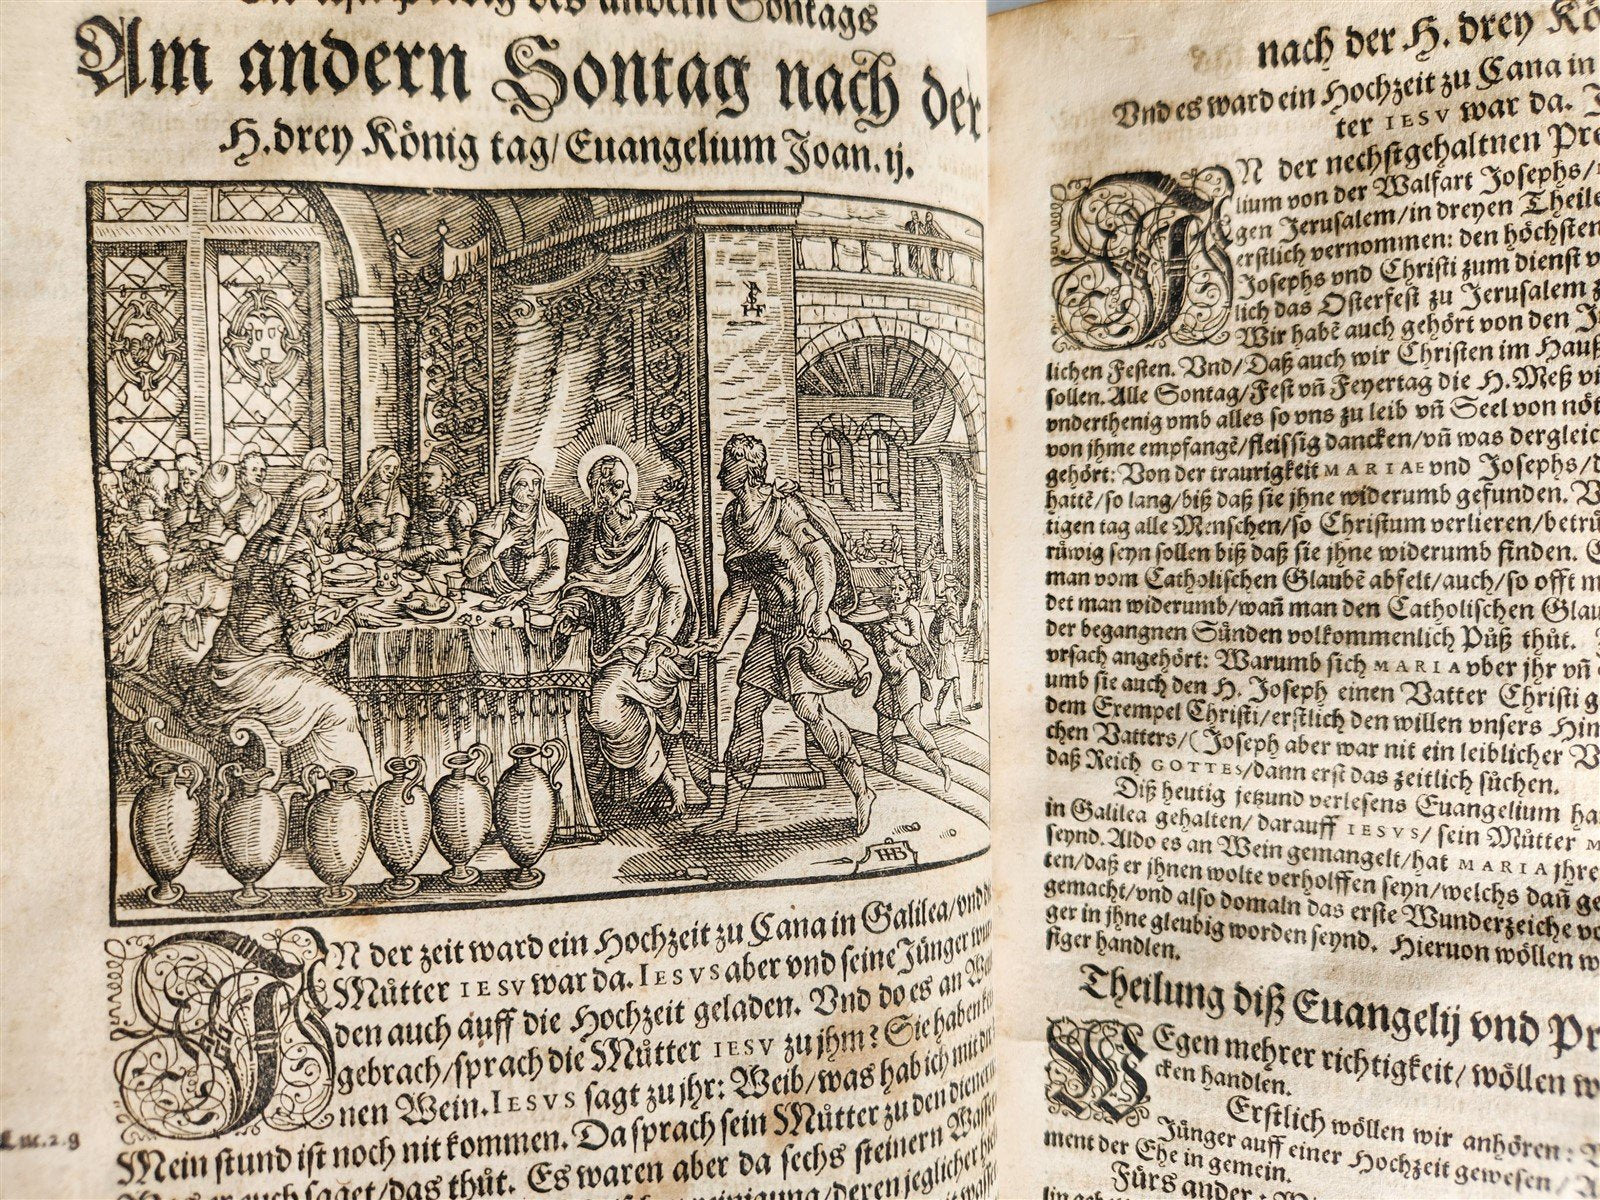 des andern Sontags
Am andern Sontag nach der
H. drey König tag/ Euangelium Joan. ij.
IN der zeit ward ein Hochzeit zu Cana in Galilea/ vnd die
Můtter IESV war da. IESVS aber vnd seine Jünger wur
den auch auff die Hochzeit geladen. Vnd do es an Wein
gebrach/ sprach die Můtter IESV zu jhm? Sie haben kei
nen Wein. IESVS sagt zu jhr: Weib/ was hab ich mit dir?
Mein stund ist noch nit kommen. Da sprach sein Můtter zu den dienern:
Was er euch saget/ das thůt. Es waren aber da sechs steinern Wasser
deren jeglicher
nach der H. drey Kö
Vnd es ward ein Hochzeit zu Cana in
ter IESV war da.
IN der nechstgehaltnen Pre
lium von der Walfart Josephs/
gen Jerusalem/ in dreyen Theile
erstlich vernommen: den höchsten
Josephs vnd Christi zum dienst
lich das Osterfest zu Jerusalem
Wir habẽ auch gehört von den
lichen Festen. Vnd/ Daß auch wir Christen im Hauß
sollen. Alle Sontag/ Fest vñ Feyertag die H. Meß
vnderthenig vmb alles so vns zu leib vñ Seel von nöt
von jhme empfangẽ/ fleissig dancken/ vñ was dergleich
gehört: Von der traurigkeit MARIAE vnd Josephs/
hattẽ/ so lang/ biß daß sie jhne widerumb gefunden.
tigen tag alle Menschen/ so Christum verlieren/ betrů
růwig seyn sollen biß daß sie jhne widerumb finden.
man vom Catholischen Glaubẽ abfelt/ auch/ so offt m
det man widerumb/ wañ man den Catholischen Glau
der begangnen Sünden volkommenlich Půß thůt.
vrsach angehört: Warumb sich MARIA vber jhr vñ
umb sie auch den H. Joseph einen Vatter Christi g
dem Exempel Christi/ erstlich den willen vnsers Him
chen Vatters/ (Joseph aber war nit ein leiblicher V
daß Reich GOTTES/ dann erst das zeitlich sůchen.
Diß heutig jetzund verlesens Euangelium ha
in Galilea gehalten/ darauff IESVS/ sein Můtter M
seynd. Aldo es an Wein gemangelt/ hat MARIA jhre
ten/ daß er jhnen wolte verholffen seyn/ welchs dañ ge
gemacht/ vnd also domaln das erste Wunderzeiche
ger in jhne gleubig worden seynd. Hieruon wöllen w
figer handlen.
Theilung diß Euangelij vnd Pr
WEgen mehrer richtigkeit/ wöllen w
cken handlen.
Erstlich wöllen wir anhören:
Jünger auff einer Hochzeit gewesen/
ment der Ehe in gemein.
Fürs ander: